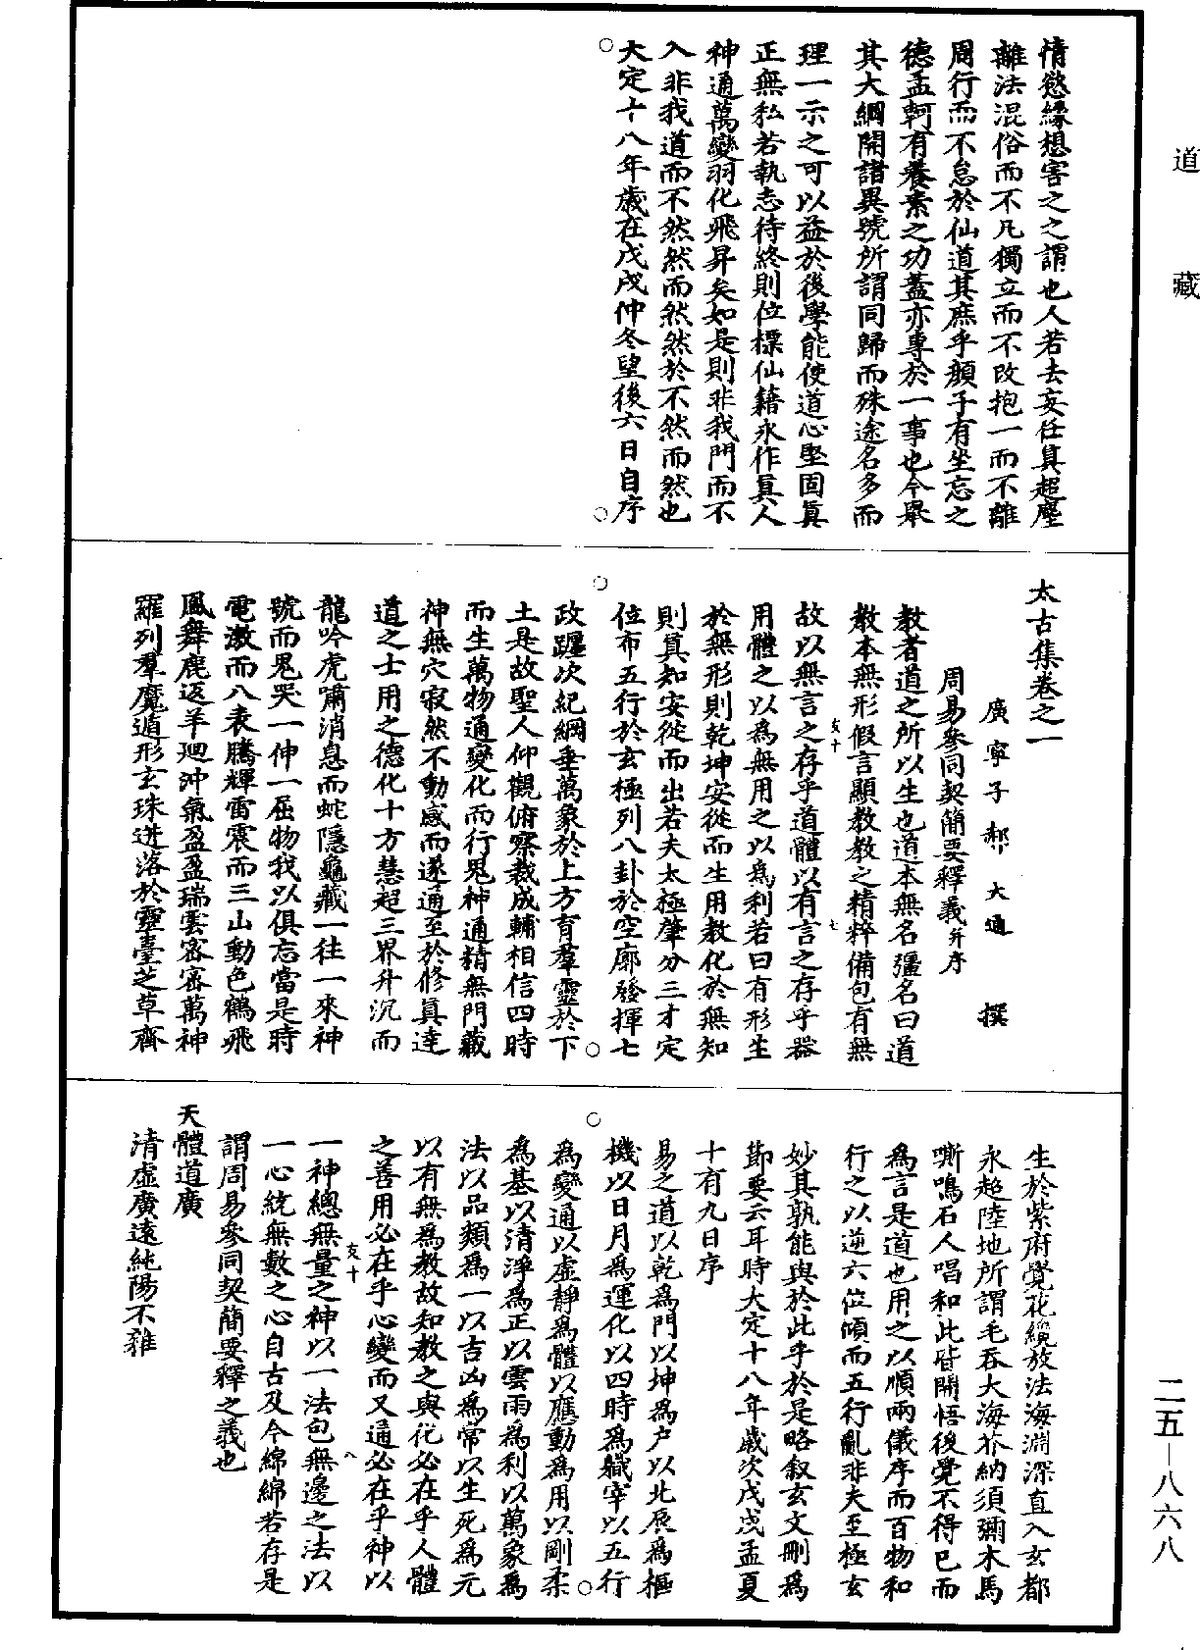 道藏
情慾緣想害之之謂也人若去妄任真超塵
離法混俗而不凡獨立而不改抱一而不離
周行而不怠於仙道其庶乎顏子有坐忘之
德孟軻有養素之功蓋亦專於一事也今舉
其大綱開諸異號所謂同歸而殊途名多而
理一示之可以益於後學能使道心堅固真
正無私若執志待終則位標仙籍永作真人
神通萬變羽化飛昇矣如是則非我門而不
入非我道而不然然而然然於不然而然也
大定十八年歲在戊戌仲冬望後六日自序
太古集卷之一
廣寧子郝大通撰
周易參同契簡要釋義并序
教者道之所以生也道本無名彊名曰道
教本無形假言顯教教之精粹備包有無
故以無言之存乎道體以有言之存乎器
用體之以為無用之以為利若曰有形生
於無形則乾坤安從而生用教化於無知
則真知安從而出若夫太極肇分三才定
位布五行於玄極列八卦於空廓發揮七
政躔次紀綱垂萬象於上方育羣靈於下
土是故聖人仰觀俯察裁成輔相信四時
而生萬物通變化而行鬼神通精無門藏
神無穴寂然不動感而遂通至於修真達
道之士用之德化十方慧超三界升沉而
龍吟虎嘯消息而蛇隱龜藏一往一來神
號而鬼哭一伸一屈物我以俱忘當是時
電激而八表騰輝雷震而三山動色鶴飛
鳳舞鹿返羊廻沖氣盈盈瑞雲密密萬神
羅列羣魔遁形玄珠迸落於靈臺芝草齊
支十
七
生於紫府覺花纔放法海淵深直入玄都
永超陸地所謂毛吞大海芥納須彌木馬
嘶鳴石人唱和此皆開悟後覺不得已而
為言是道也用之以順兩儀序而百物和
行之以逆六位傾而五行亂非夫至極玄
妙其孰能與於此乎於是略叙玄文刪為
節要云耳時大定十八年歲次戊戌孟夏
十有九日序
易之道以乾為門以坤為户以北辰為樞
機以日月為運化以四時為職宰以五行
為變通以虛靜為體以應動為用以剛柔
為基以清淨為正以雲雨為利以萬象為
法以品類為一以吉凶為常以生死為元
以有無為教故知教之與化必在乎人體
之善用必在乎心變而又通必在乎神以
一神總無量之神以一法包無邊之法以
一心統無數之心自古及今綿綿若存是
謂周易參同契簡要釋之義也
天體道廣
清虛廣遠純陽不雜
支十
八
二五－八六八